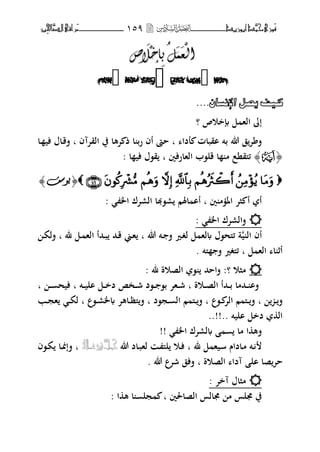 ١٥٩
الْعَمَلُ بِإِخْلَاصٍ
كيف يصل الإنسان....
إلى العمل بإخلاص ؟
وطريق الله به عقبات كأداء ، حتى أن ربنا ذكرها في القرآن ، وقال فيها
تتقطع منها قلوب العارفين ، يقول فيها :
﴿ وَمَا يُؤْمِنُ أَكْثَرُهُم بِاللَّهِ إِلَّا وَهُم مُّشْرِكُونَ ﴾ ﴿يوسف﴾
أي أكثر المؤمنين ، أعمالهم يشوبها الشرك الخفي :
والشرك الخفي :
أن النيَّة تتحول بالعمل لغير وجه الله ، يعني قد يبدأ العمل لله ، ولكن
أثناء العمل ، تتغير وجهته .
مثلا ؟: واحد ينوي الصلاة لله :
وعندما بدأ الصلاة ، شعر بوجود شخص دخل عليه ، فيحسن ،
ويزين ، ويتمم الركوع ، ويتمم السجود ، ويتظاهر بالخشوع ، لكي يعجب
الذي دخل عليه ..!!..
وهذا ما يسمى بالشرك الخفي !!
لأنه مادام سيعمل لله ، فلا يلتفت لعباد الله ، وإنما يكون
حريصا على أداء الصلاة ، وفق شرع الله .
مثال آخر :
في مجلس من مجالس الصالحين ، كمجلسنا هذا :